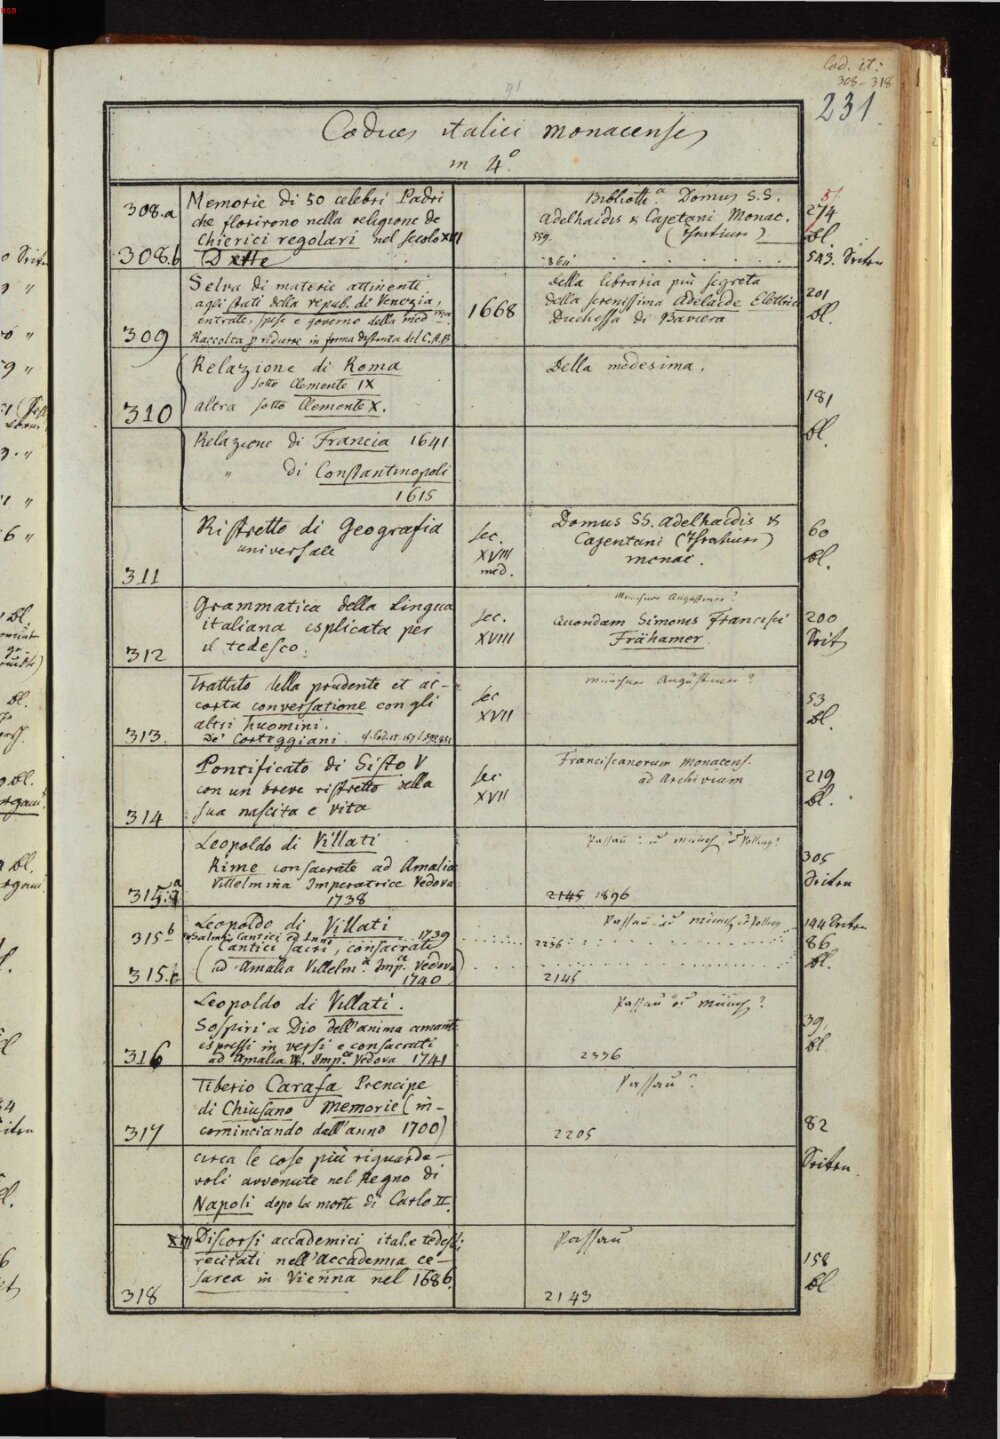 Cod. it:
308-318
231
Codices italici monacenses
in 4°.
308.a
Memorie di 50 celebri Padri
che florirono nella religione de
Chierici regolari nel secolo XVII
Biblioth.a Domus S.S.
Adelhaidis & Cajetani Monac.
559.
274
bl.
308.b
Dette
543. Seiten
309
Selva di materie attinenti
agli stati della repub. di Venezia,
entrate, spese e governo della med.ma
Raccolta
1668
Della libraria più segreta
della serenissima Adelaide Elettrice
Duchessa di Baviera
201
bl.
310
Relazione di Roma
sotto Clemente IX
altra sotto Clemente X.
Della medesima.
181
bl.
Relazione di Francia 1641
" di Constantinopoli
1615
311
Ristretto di Geografia
universale
Sec.
XVIII
med.
Domus SS. Adelhaidis &
Cajentani
monac.
60
bl.
312
Grammatica della Lingua
italiana esplicata per
il tedesco.
Sec.
XVIII
München Augustiner?
Quondam Simonis Francisci
Frähamer.
200
Seit
313.
Trattato della prudente et ac-
corta conversatione con gli
altri huomini.
De' Corteggiani.
Sec
XVII
München Augustiner?
53
bl.
314
Pontificato di Sisto V
con un breve ristretto della
sua nascita e vita
Sec.
XVII
Franciscanorum Monacens.
ad Archivium
219
bl.
315.a
Leopoldo di Villati
Rime consacrate ad Amalia
Villelmina Imperatrice Vedova
1738
2145 1896
305
Seiten
315b
Leopoldo di Villati
Salmi, Cantici ed Inni 1739
2236
144 Seiten
315.c
(Cantici sacri, consacrati
ad Amalia Villelm.a Imp.ce Vedova)
1740
2145
86
bl.
316
Leopoldo di Villati.
Sospiri a Dio dell'anima amante
espressi in versi e consacrati
ad Amalia W. Imp.ce Vedova 1741
Passau od. Münch?
2336
39
bl
317
Tiberio Carafa Prencipe
di Chiusano Memorie (in-
cominciando dall'anno 1700)
Passau?
2205
82
circa le cose più riguarde-
voli avvenute nel Regno di
Napoli dopo la morte di Carlo II.
Seiten
318
Discorsi accademici ital. e tedeschi
recitati nell'accademia ce-
sarea in Vienna nel 1686.
Passau
2143
158
bl